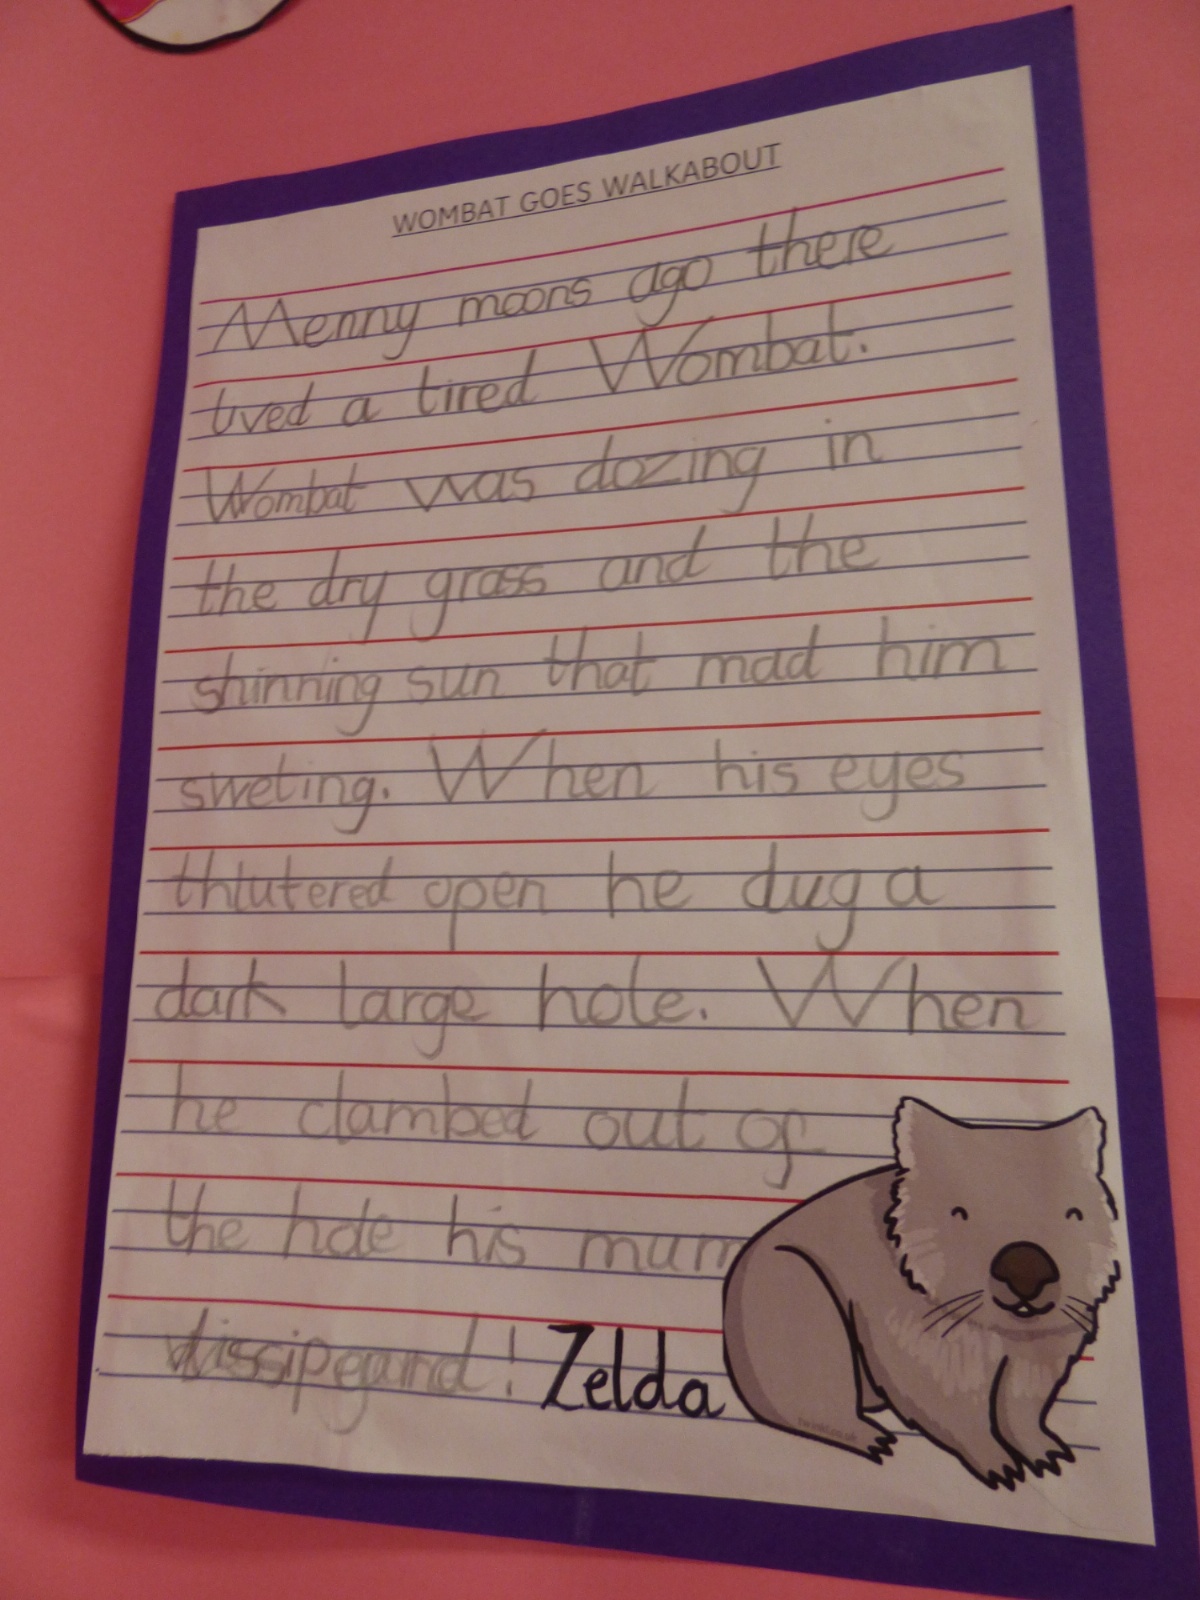 WOMBAT GOES WALKABOUT
Menny moons ago there
lived a tired Wombat.
Wombat was dozing in
the dry grass and the
shinning sun that mad him
sweting. When his eyes
thlutered open he dug a
dark large hole. When
he clambed out of
the hole his mum
dissipeand! Zelda
twinkl.co.uk